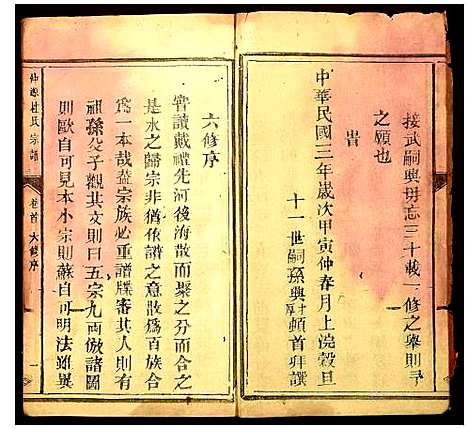 接武嗣興毋忘三十載一修之舉則予
之願也
旹
中華民國三年歲次甲寅仲春月上浣穀旦
十一世嗣孫興頓首拜譔
六修序
嘗讀戴禮先河後海散而聚之分而合之
是水之歸宗非猶族譜之意散為百族合
為一本哉葢宗族必重譜牒審其人則有
祖孫父子觀其文則曰五宗九兩倣諸圖
則歐自可見本小宗則蘇自可明法雖異
杜氏宗譜
卷首
六修序
一